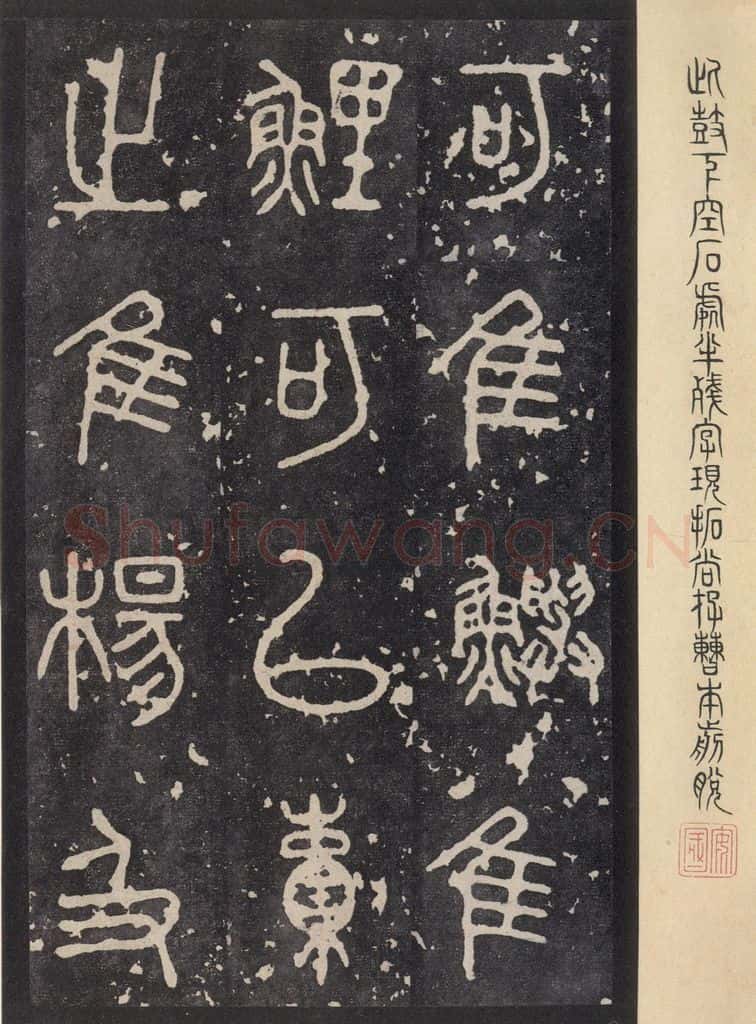 此鼓下空石處半殘字現拓尚存舊本剪脫
安國
可隹鱮隹
鯉可以橐
之隹楊及
Shufawang.CN